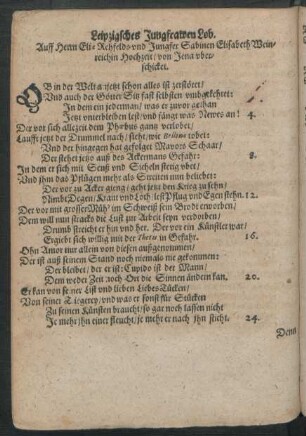 Leipzigsches Jungfrawen Lob.
Auff Herrn Eli= Rehfelds vnd Jungfer Sabinen Elisabeth Wein=
reichin Hochzeit/ von Jena vber=
schicket.
OB in der Welt a jetzt schon alles ist zerstöret/
Vnd auch der Göner Sitz fast selbsten vmbgekehret:
In dem ein jederman/ was er zuvor gethan
Jetzt vnterbleiben lest/ vnd fängt was Newes an! 4.
Der vor sich allezeit dem Phœbus gantz verlobet/
Laufft jetzt der Drummel nach/ siehet/ wie tobet:
Vnd der hingegen hat gefolget Mavors Schaar/
Der stehet jetzo auß des Ackermans Gefahr: 8.
In dem er sich mit Senß vnd Sicheln stetig vbet/
Vnd jhm das Pflügen mehr als Streiten nun beliebet:
Der vor zu Acker gieng/ geht jetzt den Krieg zu sehn/
Nimbt Degen/ Kraut vnd Loth/ lest Pflug vnd Egen stehn. 12.
Der vor mit grosser Müh' im Schweiß sein Brodt erworben/
Dem will nun stracks die Lust zur Arbeit seyn verdorben/
Drumb streicht er hin vnd her. Der vor ein Künstler war/
Ergiebt sich willig mit der in Gefahr. 16.
Ohn Amor nur allein von diesen außgenommen/
Der ist auß seinem Stand noch niemals nie gekommen:
Der bleibet/ der er ist: Cupido ist der Mann/
Dem weder Zeit noch Ort die Sinnen ändern kan. 20.
Er kan von seiner List vnd lieben Liebes Tücken/
Von seiner Siegerey/ vnd was er sonst für Stücken
Zu seinen Künsten braucht/ so gar noch lassen nicht
Je mehr jhn einer fleucht/ je mehr er nach jhm sticht. 24.
Denn